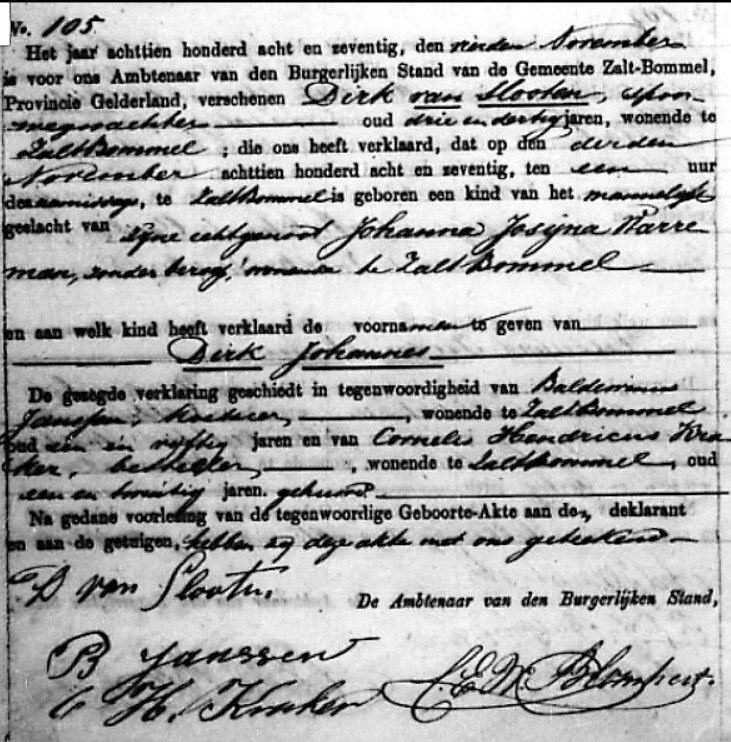 No. 105
Het jaar achttien honderd acht en zeventig, den vierden November
is voor ons Ambtenaar van den Burgerlijken Stand van de Gemeente Zalt-Bommel,
Provincie Gelderland, verschenen Dirk van Slooten, spoor-
wegwachter oud drie en dertig jaren, wonende te
ZaltBommel ; die ons heeft verklaard, dat op den derden
November achttien honderd acht en zeventig, ten een uur
des namiddags, te ZaltBommel is geboren een kind van het mannelijk
geslacht van zijne echtgenoot Johanna Josijna Warre
man, zonder beroep, wonende te ZaltBommel
en aan welk kind heeft verklaard de voornamen te geven van
Dirk Johannes
De gezegde verklaring geschiedt in tegenwoordigheid van
Janssen, wonende te ZaltBommel
oud een en vijftig jaren en van Cornelis Hendricus Kra
ker, besteller, wonende te Zaltbommel, oud
een en twintig jaren.
Na gedane voorlezing van de tegenwoordige Geboorte-Akte aan de, deklarant
en aan de getuigen, hebben zij deze akte met ons geteekend
D van Slooten.
De Ambtenaar van den Burgerlijken Stand,
B Janssen
C H. Kraker